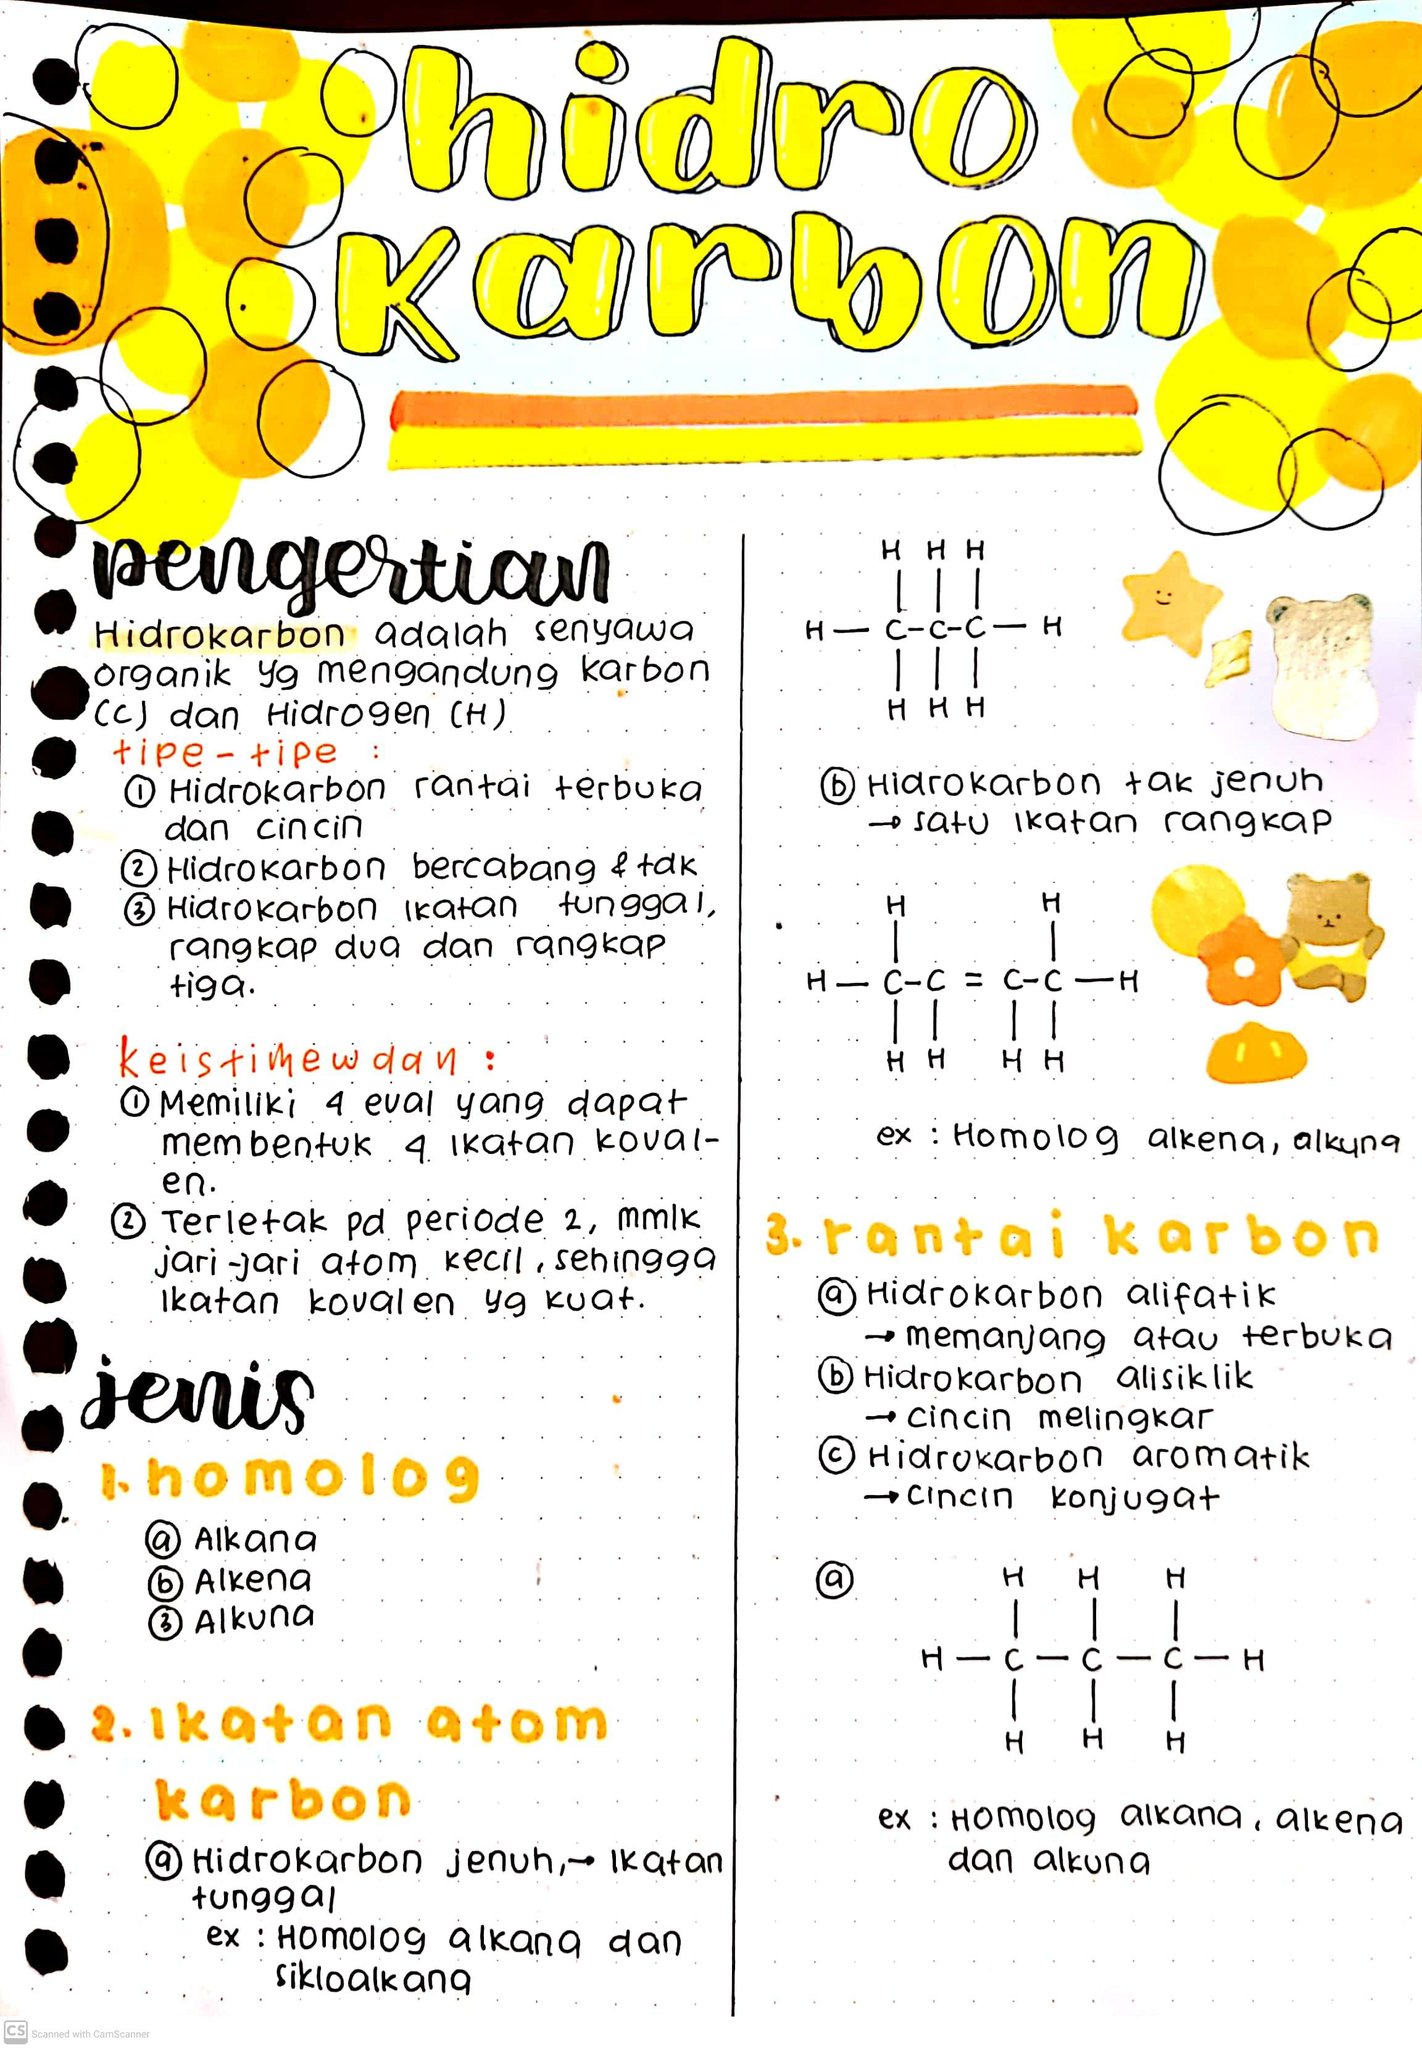 hidro
karbon
pengertian
Hidrokarbon adalah senyawa
organik yg mengandung karbon
(C) dan Hidrogen (H)
tipe - tipe :
① Hidrokarbon rantai terbuka
dan cincin
② Hidrokarbon bercabang & tdk
③ Hidrokarbon ikatan tunggal,
rangkap dua dan rangkap
tiga.
keistimewaan :
① Memiliki 4 eval yang dapat
membentuk 4 ikatan koval-
en.
② Terletak pd periode 2, mmlk
jari-jari atom kecil, sehingga
ikatan kovalen yg kuat.
jenis
1. homolog
ⓐ Alkana
ⓑ Alkena
③ Alkuna
2. Ikatan atom
karbon
ⓐ Hidrokarbon jenuh, → ikatan
tunggal
ex : Homolog alkana dan
sikloalkana
H H H
H — C-C-C — H
H H H
ⓑ Hidrokarbon tak jenuh
→ satu ikatan rangkap
H H
H — C-C = C-C — H
H H H H
ex : Homolog alkena, alkyna
3. rantai karbon
ⓐ Hidrokarbon alifatik
→ memanjang atau terbuka
ⓑ Hidrokarbon alisiklik
→ cincin melingkar
ⓒ Hidrokarbon aromatik
→ cincin konjugat
ⓐ H H H
H — C — C — C — H
H H H
ex : Homolog alkana, alkena
dan alkuna
CS Scanned with CamScanner